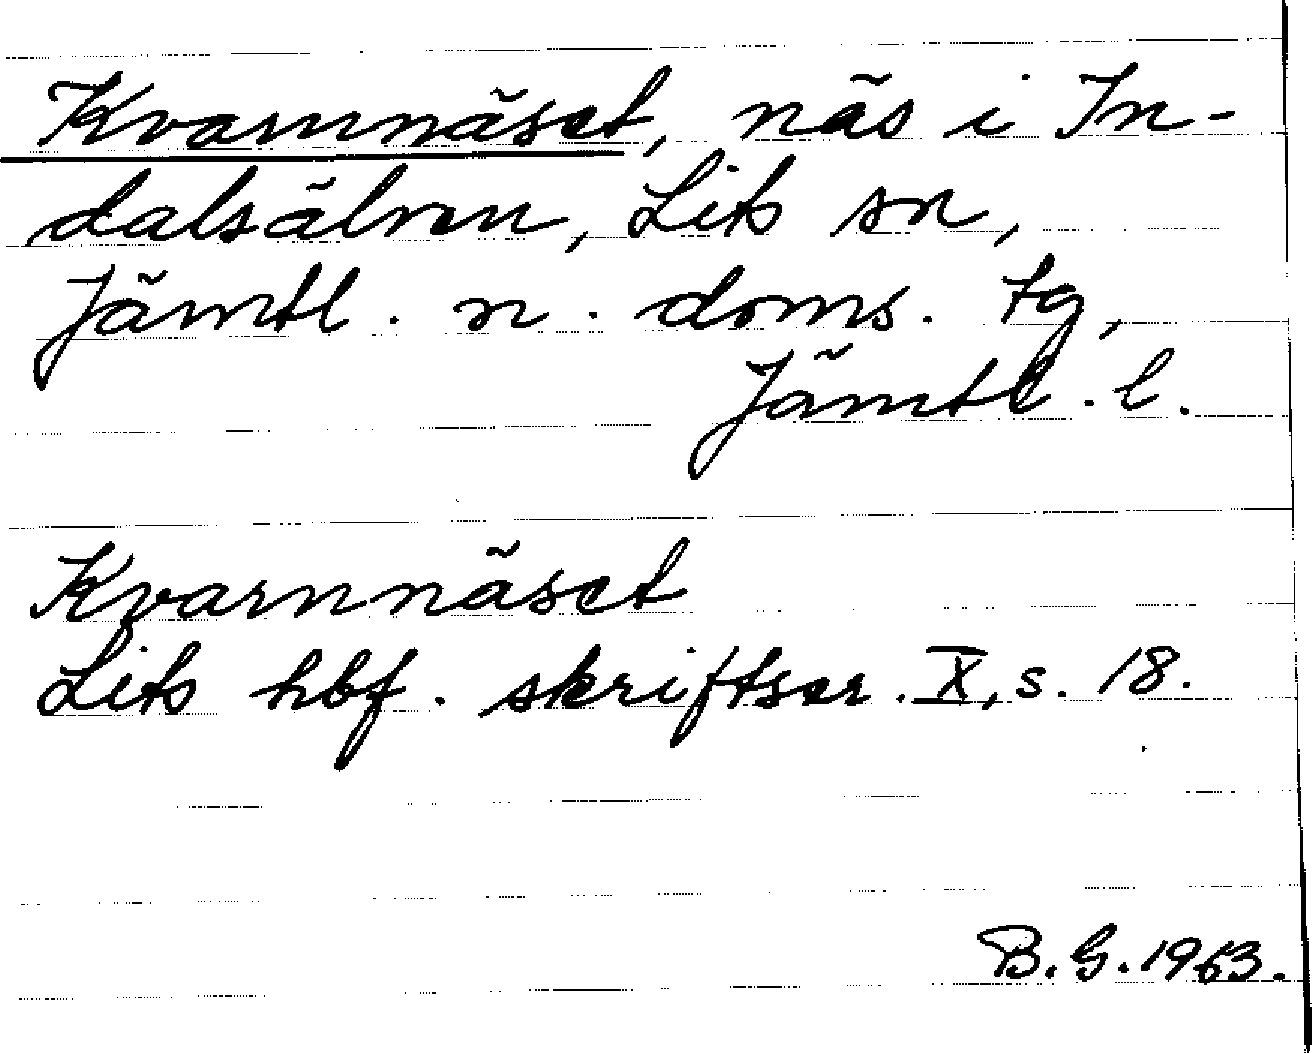 Kvarnnäset, näs i In-
dalsälven, Lits sn,
Jämtl. n. doms. tg,
Jämtl. l.
Kvarnnäset
Lits hbf. skriftser. X, s. 18.
B.G. 1963.